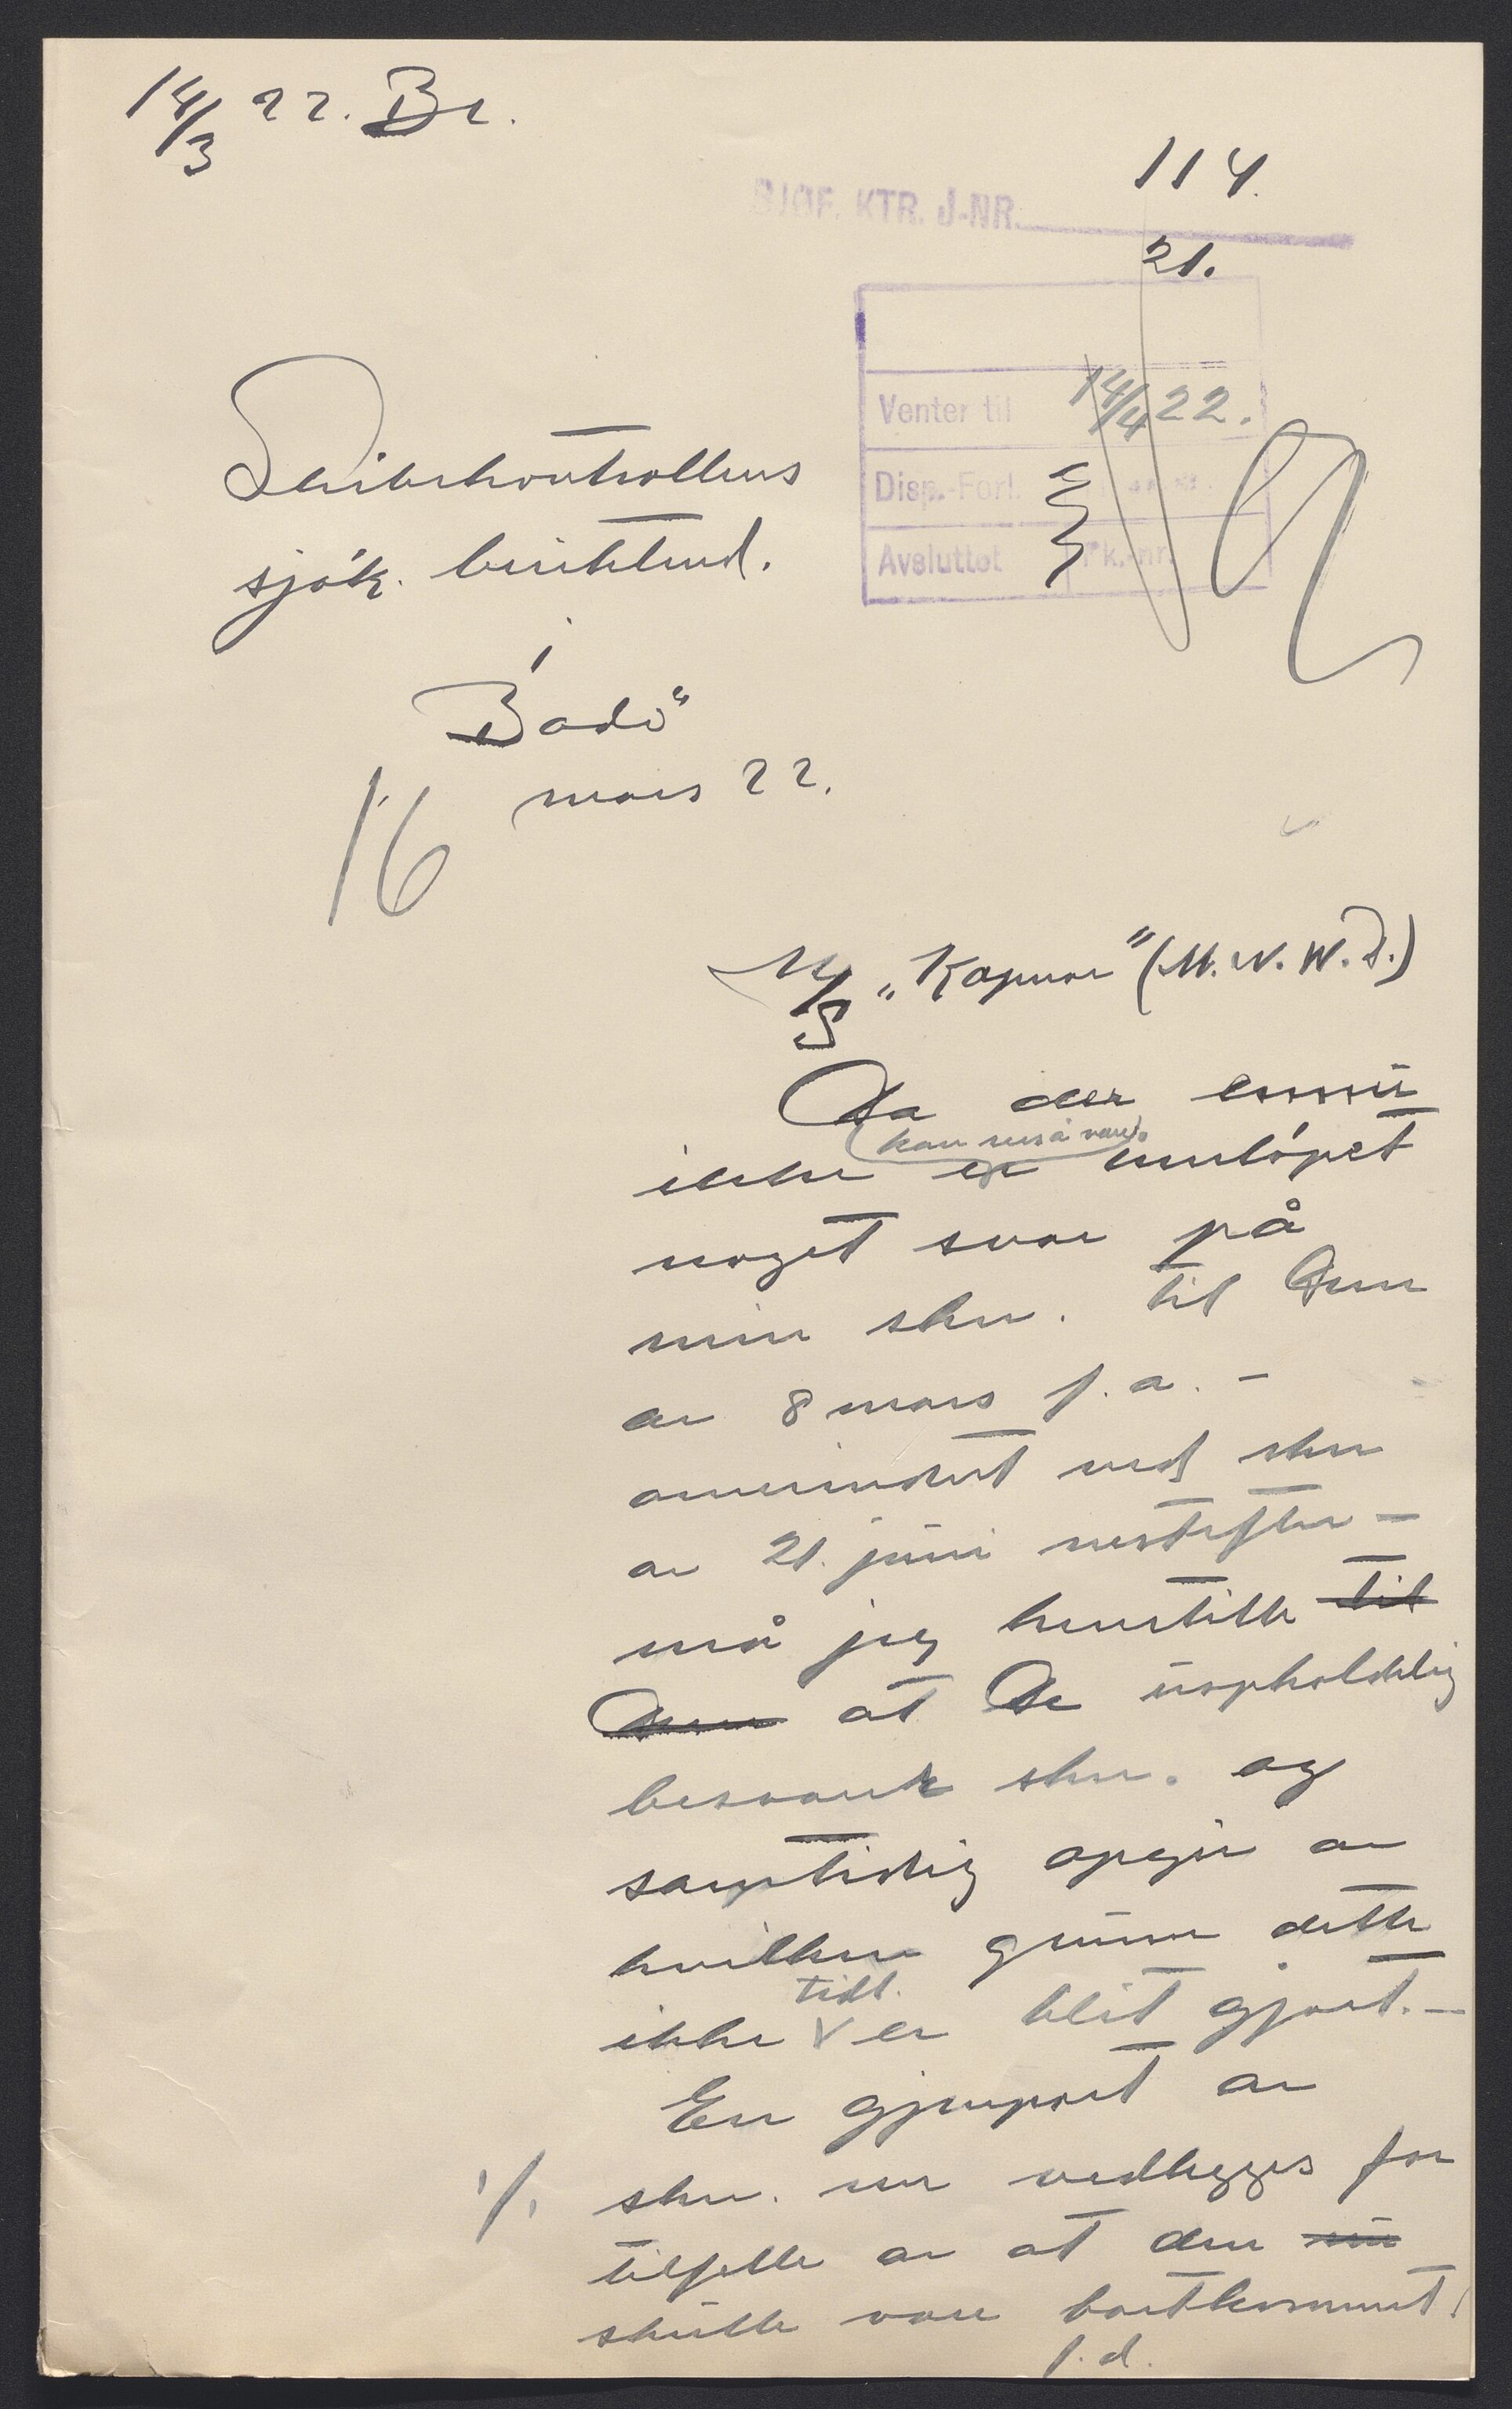 14/3 22. Br.
SJØF. KTR. J-NR.
114.
21.
Venter til 14/4 22.
Disp.-Forl.
Avsluttet Pk.-nr.
Skibskontrollens
sjøk.
i
Bodö
16 mars 22.
M/S "Kapnor" (M.N.W.D.)
Da der ennu
(kan sees å være)
ikke er innløpet
noget svar på
min skr. til Dem
av 8 mars f.a. -
anmindet ved skr
av 21. juni nestefter -
må jeg henstille til
Dem at De uopholdelig
besvarer skr. og
samtidig opgir av
hvilken grunn dette
tidl.
ikke er blit gjort. -
En gjenpart av
1/1 skr. vedlegges for
tilfelle av at den nu
skulle være bortkommet.
f.d.